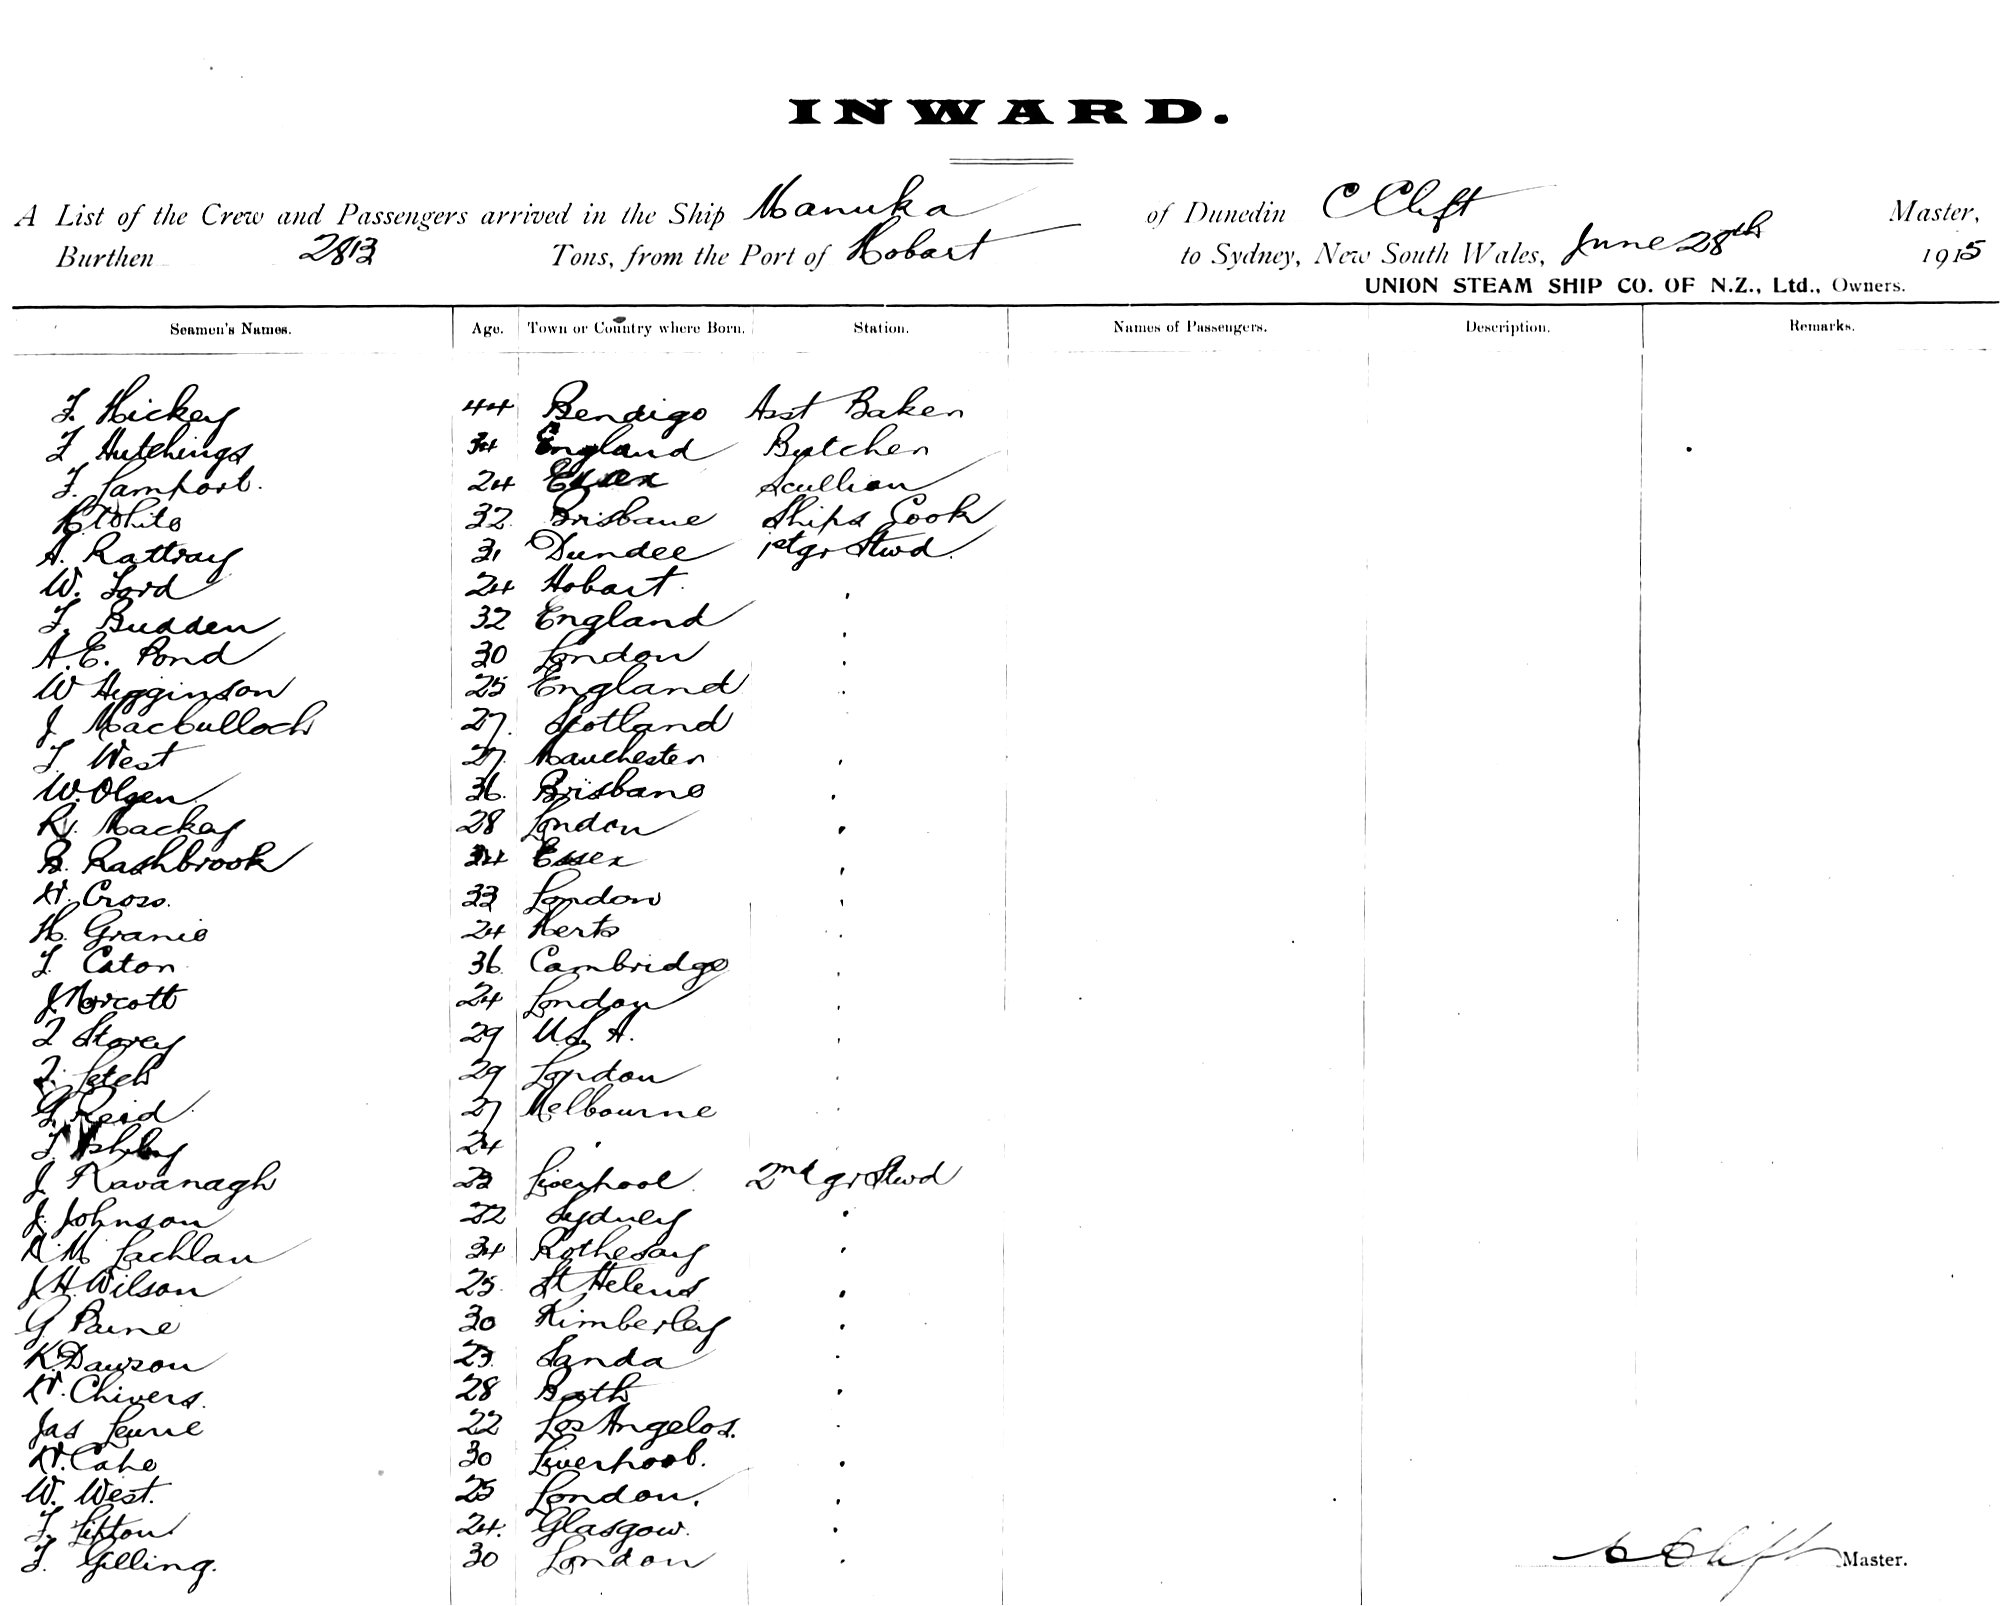 INWARD.
A List of the Crew and Passengers arrived in the Ship Manuka of Dunedin C Clift Master,
Burthen 2813 Tons, from the Port of Hobart to Sydney, New South Wales, June 28th 1915
UNION STEAM SHIP CO. OF N.Z., Ltd., Owners.
Seamen's Names. Age. Town or Country where Born. Station. Names of Passengers. Description. Remarks.
F. Hickey 44 Bendigo Asst Baker
F Hutchings 34 England Butcher
F. Lamport. 24 Essex Scullion
White 32 Brisbane Ships Cook
A. Rattray 31 Dundee 1st gr Stwd.
W. Ford 24 Hobart
F. Budden 32 England
A.E. Pond 30 London
W Higginson 25 England
J MacCulloch 27. Scotland
F West 27. Manchester
W. Olsen 36. Brisbane
R. Mackey 28 London
B. Rashbrook 34 Essex
H. Cross. 33 London
H. Granie 24 Herts
F. Eaton 36. Cambridge
J Norcott 24 London
F Storey 29 U.S.A.
F. Letch 29 London
G. Reid 27 Melbourne
F Ashby 24
J Kavanagh 23 Liverpool 2nd gr Stwd
J. Johnson 22 Sydney
M Lachlan 34 Rothesay
J H. Wilson 25. St Helens
G Paine 30 Kimberley
K. Dawson 23. Sanda
H. Chivers. 28 Bath
Jas 22 Los Angelos.
H. Cahe 30 Liverpool.
W. West. 25 London.
F. Lipton 24. Glasgow.
F. Gilling. 30 London
C Clift Master.